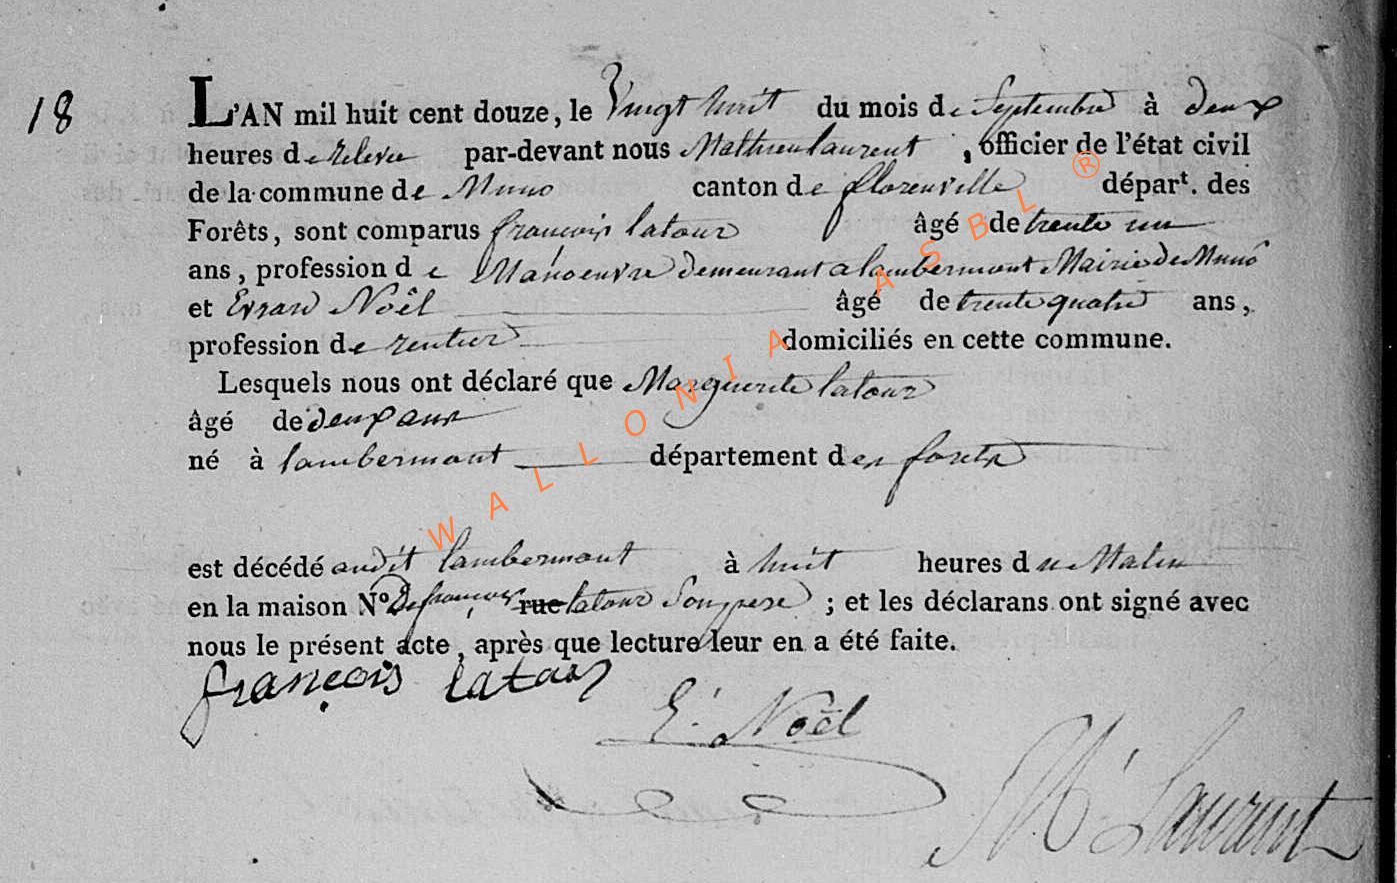 18
L'AN mil huit cent douze, le Vingt huit du mois de Septembre à deux
heures de relevée par-devant nous Mathieu laurent, officier de l'état civil
de la commune de Muno canton de florenville départ. des
Forêts, sont comparus françois latour âgé de trente un
ans, profession de Manoeuvre demeurant a lambermont Mairie de Muno
et Errard Noêl âgé de trente quatre ans,
profession de rentier domiciliés en cette commune.
Lesquels nous ont déclaré que Marguerite latour
âgé de deux ans
né à lambermont département des forets
est décédé audit lambermont à huit heures du Matin
en la maison No De françois rue latour Son pere ; et les déclarans ont signé avec
nous le présent acte, après que lecture leur en a été faite.
françois latour
E. Noël
M. Laurent
WALLONIA ASBL ®